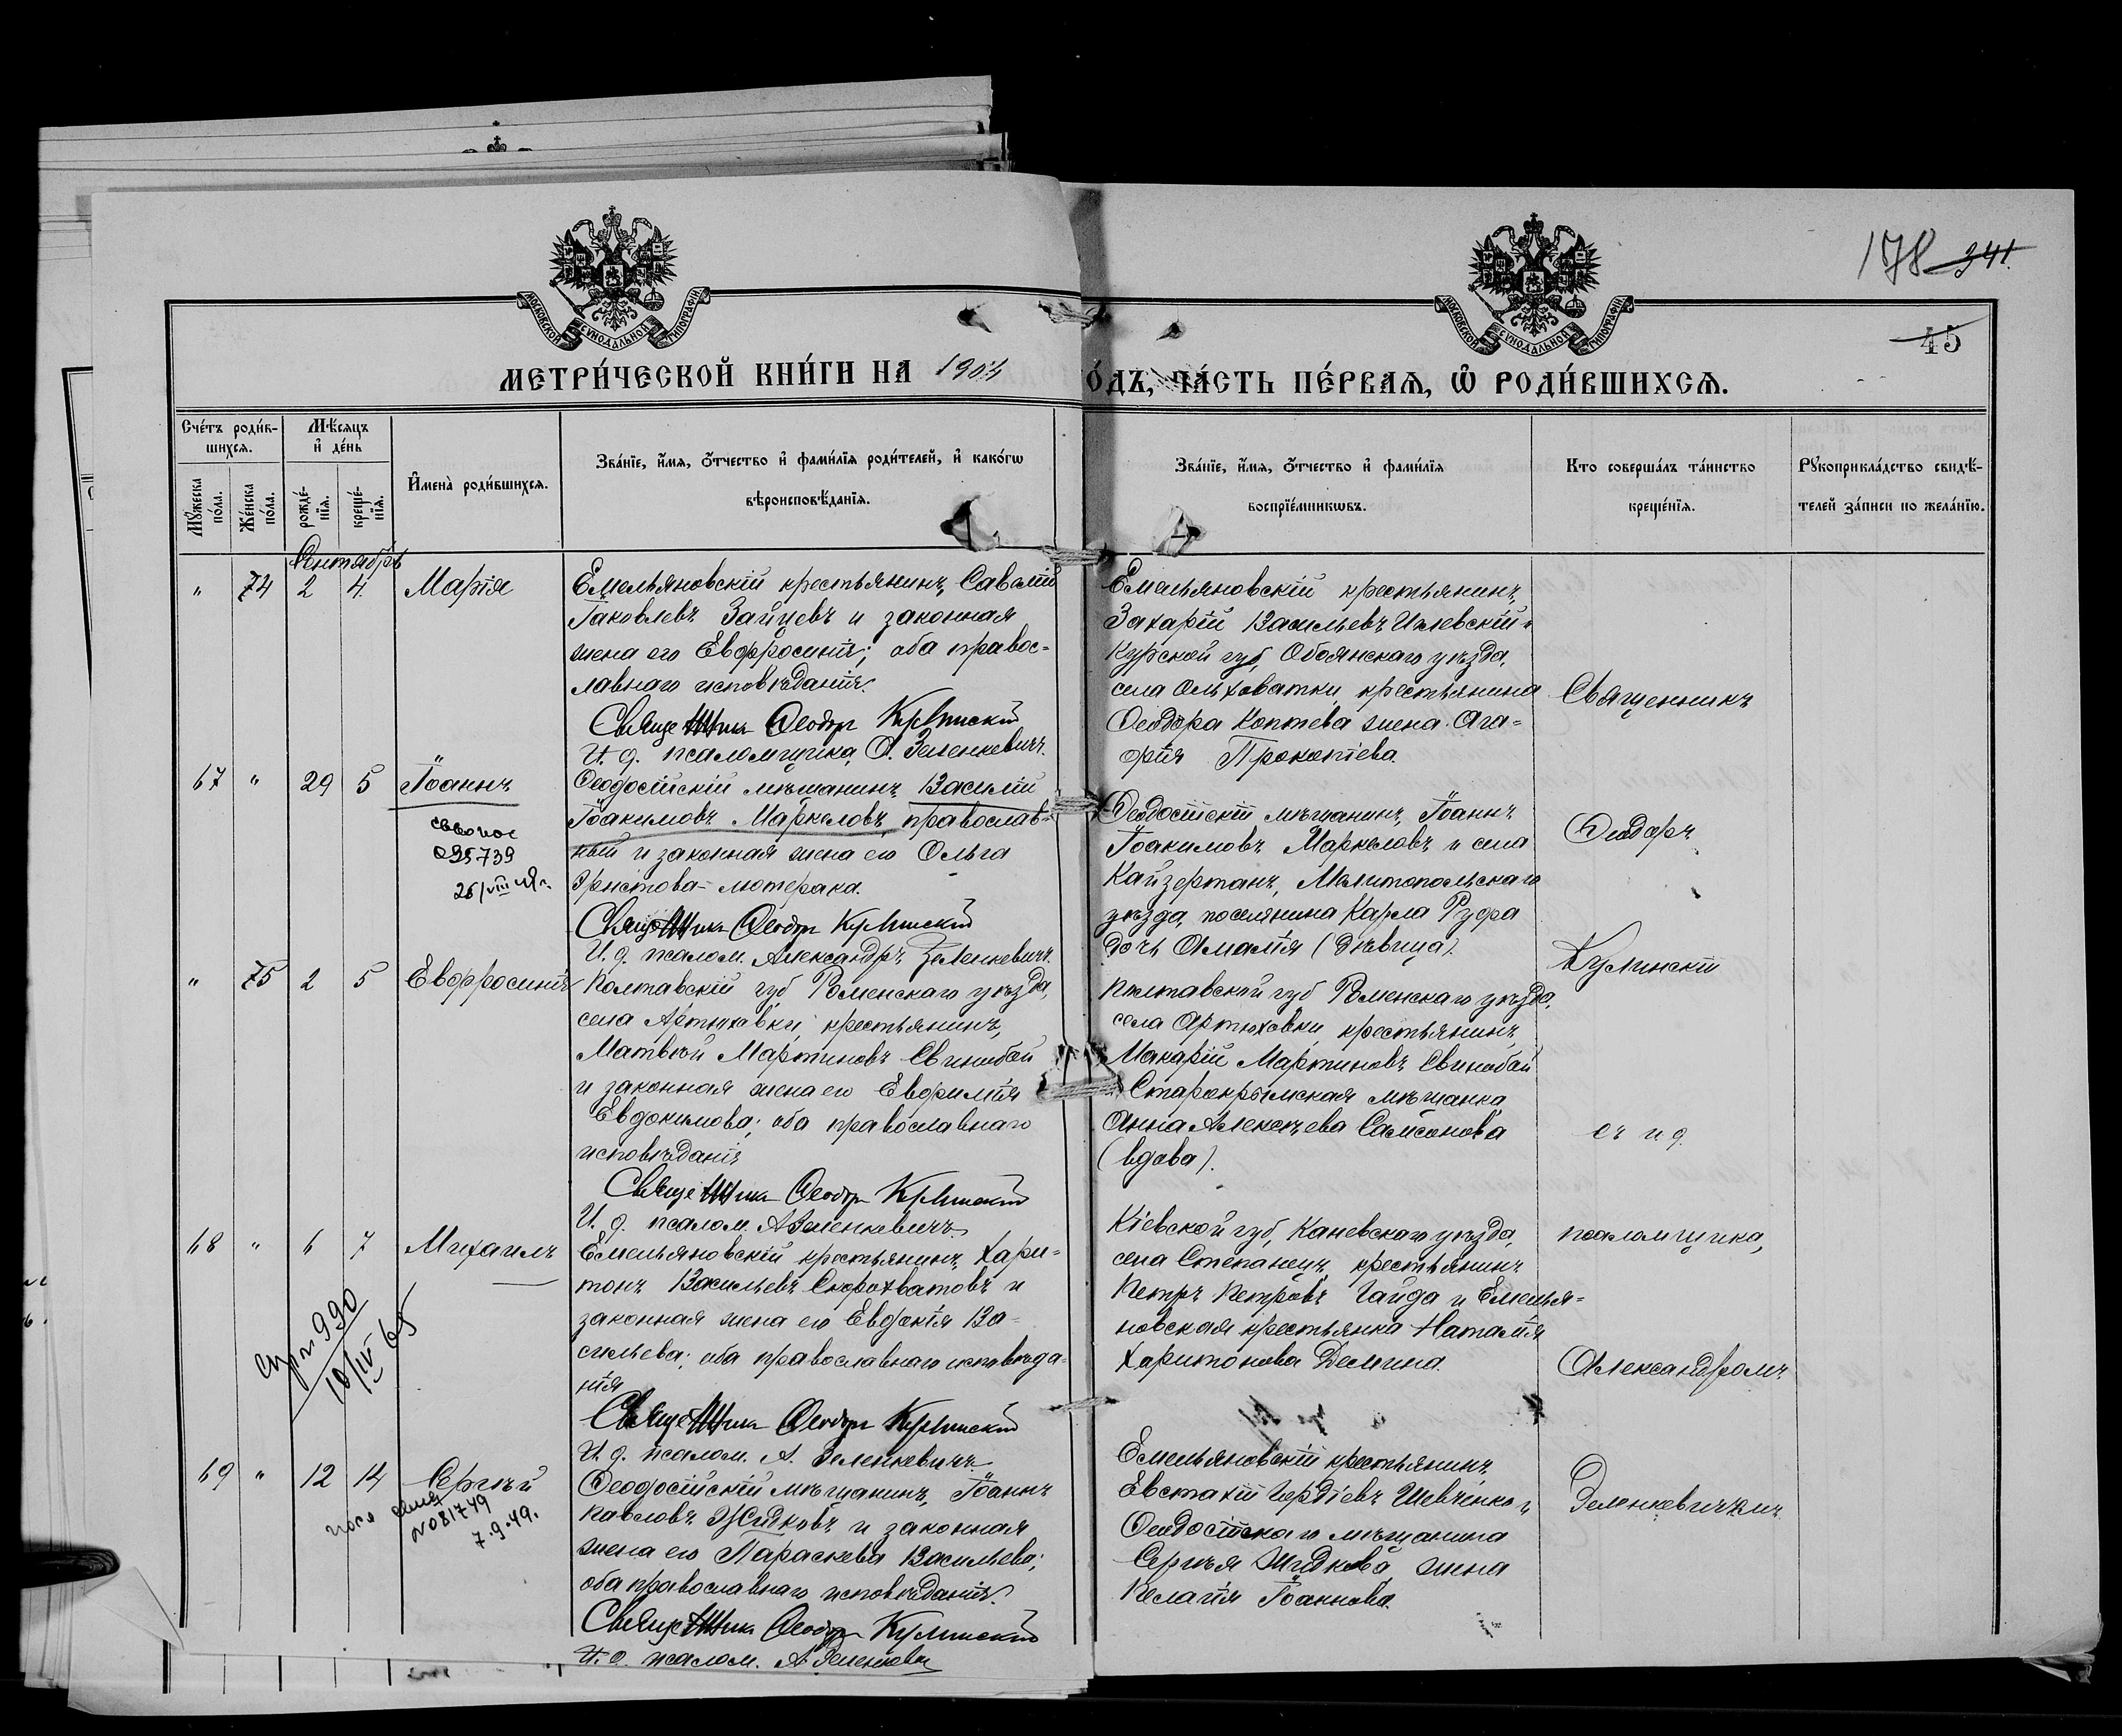 178 241.
45
МОСКОВСКОЙ СѴНОДАЛЬНОЙ ТИПОГРАФІИ
МОСКОВСКОЙ СѴНОДАЛЬНОЙ ТИПОГРАФІИ
МЕТРИ́ЧЕСКОЙ КНИ́ГИ НА 1904 ГО́ДЪ, ЧА́СТЬ ПЕ́РВАЯ, Ѿ РОДИ́ВШИХСЯ.
Сче́тъ роди́в-
шихся.
Мѣ́сяцъ
и҆ де́нь
Мꙋ́жеска
по́ла.
Же́нска
по́ла.
рожде́-
нїя.
креще́-
нїя.
И҆мена̀ роди́вшихся.
Зва́нїе, и҆́мя, ѻ҆́тчество и҆ фами́лїя роди́телей, и҆ како́гѡ
вѣроисповѣ́данїя.
Зва́нїе, и҆́мя, ѻ҆́тчество и҆ фами́лїя
воспрїе́мникѡвъ.
Кто соверша́лъ та́инство
креще́нїя.
Рꙋкоприкла́дство свидѣ́-
телей за́писи по жела́нїю.
Сентябрь
" 74 2 4 Марія
Емельяновскій крестьянинъ, Савелій
Іаковлевъ Зайцевъ и законная
жена его Евфросинія; оба правос-
лавнаго исповѣданія.
Священникъ Ѳеодоръ Кулинскій
И. д. псаломщика А. Зеленкевичъ.
Емельяновскій крестьянинъ,
Захарій Васильевъ
Курской губ, Обоянскаго уѣзда,
села Ольховатки, крестьянина
Ѳеодора Коптева жена Ага-
фія Прокопіева.
67 " 29 5 Іоаннъ
095739
26/VIII
Ѳеодосійскій мѣщанинъ, Василій
Іоакимовъ Маркеловъ, православ-
ный и законная жена его Ольга
Христова - лютерака.
Священникъ Ѳеодоръ Кулинскій
И. д. псалом. Александръ Зеленкевичъ.
Ѳеодосійскій мѣщанинъ, Іоаннъ
Іоакимовъ Маркеловъ и села
Кайзерталъ, Мелитопольскаго
уѣзда, поселянина Карла Руфа
дочь Амалія (дѣвица).
" 75 2 5 Евфросинія
Полтавскій губ Роменскаго уѣзда,
села Артюховки, крестьянинъ,
Матвѣй Мартиновъ Свинобой
и законная жена его Евфимія
Евдокимова; оба православнаго
исповѣданія
Священникъ Ѳеодоръ Кулинскій
И. д. псалом. А Зеленкевичъ
Полтавской губ Роменскаго уѣзда,
села Артюховки, крестьянинъ,
Макарій Мартиновъ Свинобой
и Старокрымская мѣщанка
Анна Алексѣева Самсонова
(вдова).
68 " 6 7 Михаилъ
990
10/IV 65
Емельяновскій крестьянинъ, Хари-
тонъ Васильевъ Скорохватовъ и
законная жена его Евдокія Ва-
сильева; оба православнаго исповѣда-
нія
Священникъ Ѳеодоръ Кулинскій
И. д. псалом. А. Зеленкевичъ
Кіевской губ, Каневскаго уѣзда,
села Степанецъ, крестьянинъ
Петръ Петровъ Гайда и Емелья-
новская крестьянка Наталія
Харитонова Демина.
69 " 12 14 Сергѣй
№081749
7.9.49.
Ѳеодосійскій мѣщанинъ, Іоаннъ
Павловъ Жидковъ и законная
жена его Параскева Васильева;
оба православнаго исповѣданія.
Священникъ Ѳеодоръ Кулинскій
И. д. псалом. А Зеленкевичъ
Емельяновскій крестьянинъ,
Евстахій Гордіевъ Шевченко и
Ѳеодосійскаго мѣщанина
Сергѣя Жидкова жена
Пелагія Іоаннова.
Священникъ
Ѳеодоръ
Кулинскій
съ и д.
псаломщика,
Александромъ
Зеленкевичемъ.